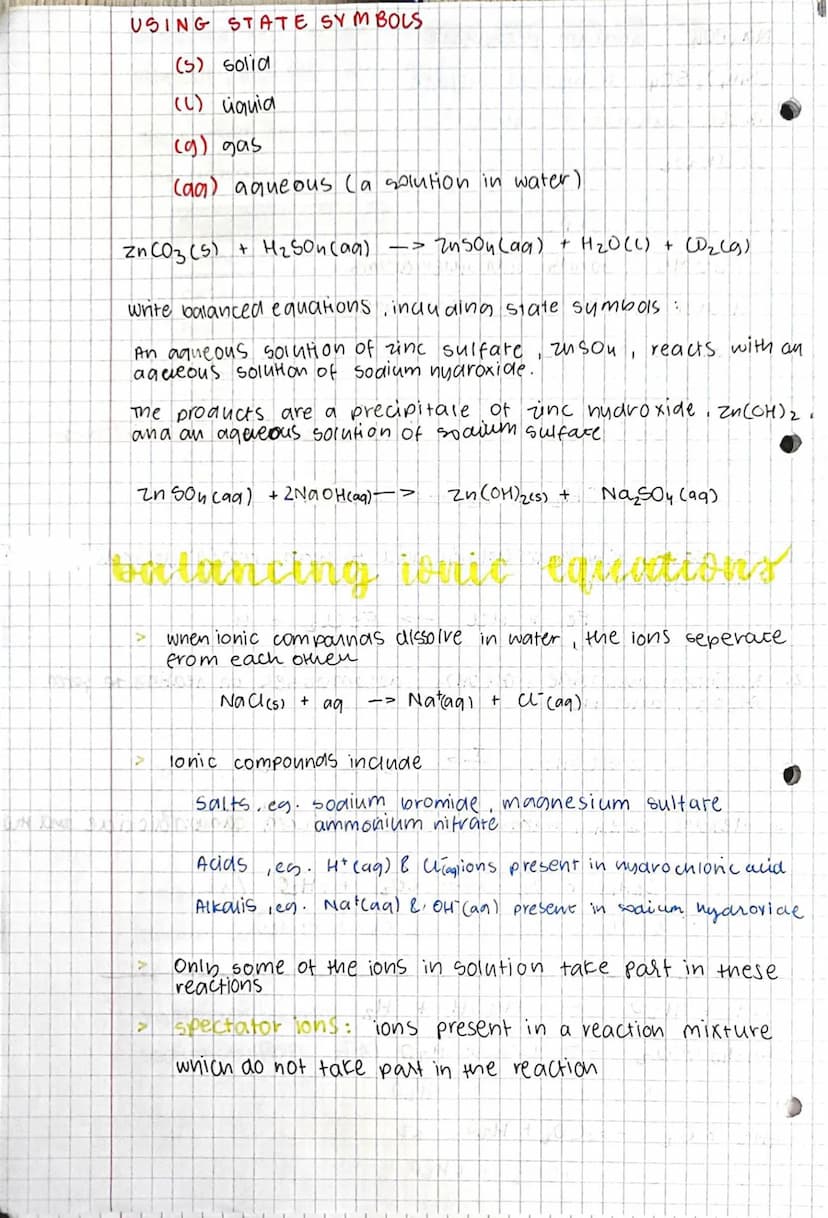 USING STATE SYMBOLS
(s) solid
(l) liquid
(g) gas
(aq) aqueous (a solution in water)
ZnCO3(s) + H2SO4(aq) —> ZnSO4(aq) + H2O(l) + CO2(g)
write balanced equations, including state symbols :
An aqueous solution of zinc sulfate, ZnSO4, reacts with an
aqueous solution of sodium hydroxide.
The products are a precipitate of zinc hydroxide, Zn(OH)2,
and an aqueous solution of sodium sulfate
ZnSO4(aq) + 2NaOH(aq) —> Zn(OH)2(s) + Na2SO4(aq)
balancing ionic equations
> when ionic compounds dissolve in water, the ions seperate
from each other
NaCl(s) + aq —> Na+(aq) + Cl-(aq)
> Ionic compounds include
Salts, eg. sodium bromide, magnesium sulfate
ammonium nitrate
Acids, eg. H+(aq) & Cl-(aq) ions present in hydrochloric acid
Alkalis, eg. Na+(aq) & OH-(aq) present in sodium hydroxide
> Only some of the ions in solution take part in these
reactions
> spectator ions: ions present in a reaction mixture
which do not take part in the reaction